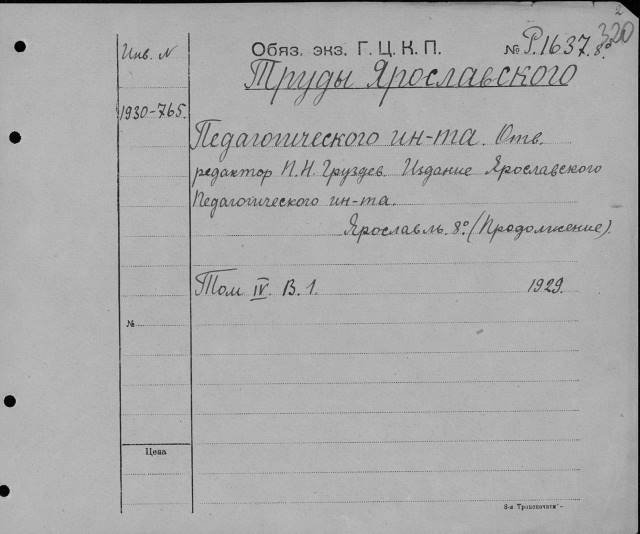 2
320
Инв. N Обяз. экз. Г. Ц. К. П. № Р.1637. 8°
Труды Ярославского
1930-765.
Педагогического ин-та. Отв.
редактор П. Н. Груздев. Издание Ярославского
Педагогического ин-та.
Ярославль. 8° (Продолжение).
Том IV. В. 1. 1929.
№
Цена